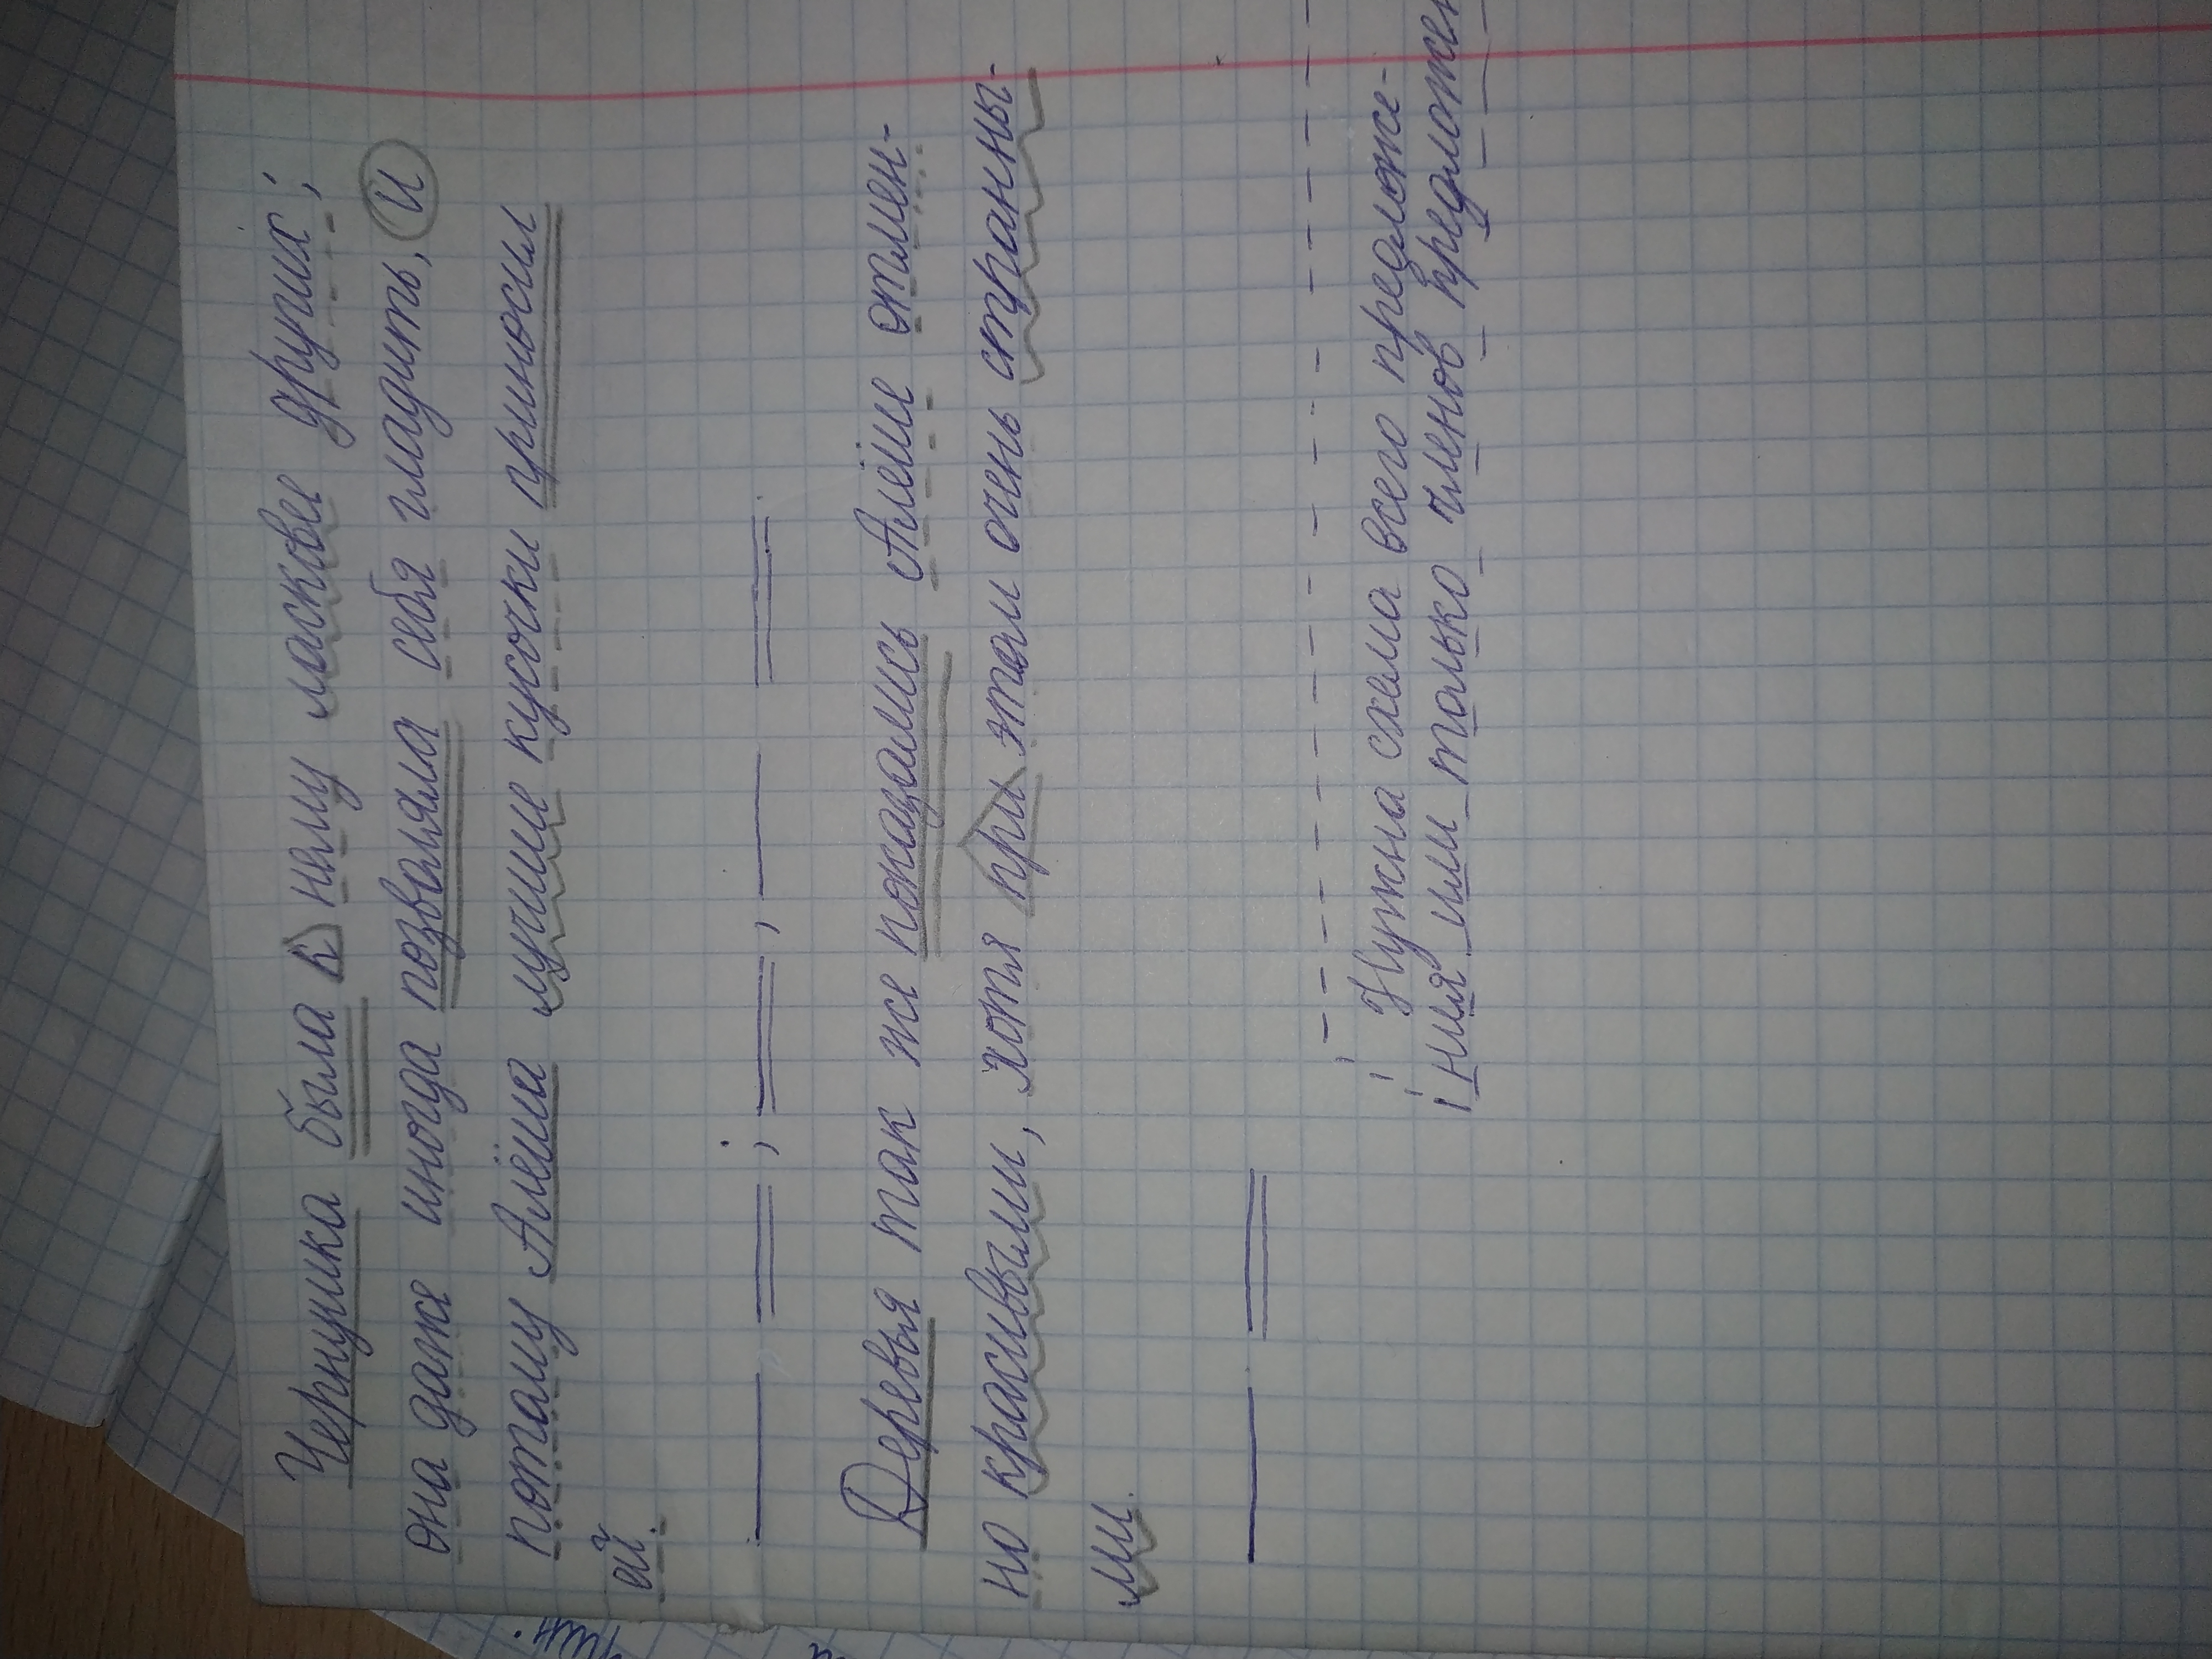 Чернушка была к нему ласковее других;
она даже иногда позволяла себя гладить, и
потому Алёша лучшие кусочки приносил
ей.
Деревья так же показались Алёше отмен-
но красивыми, хотя при этом очень странны-
ми.
Нужна схема всего предложе-
ния или только членов предложен